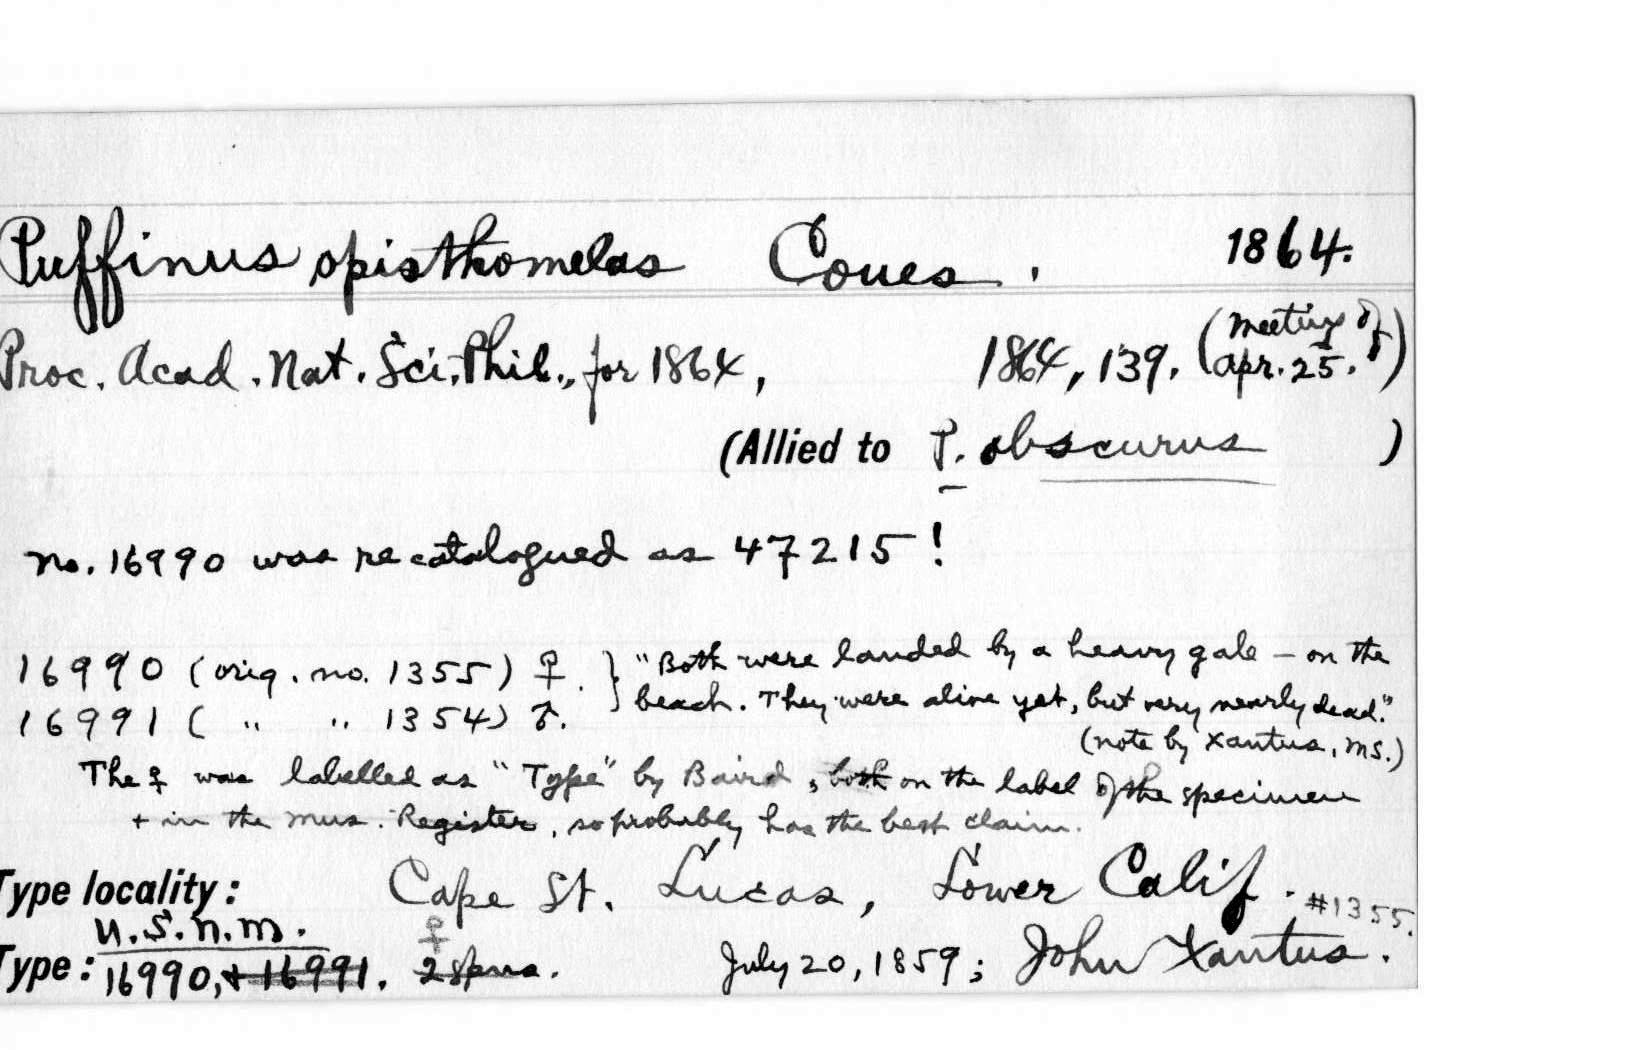 Puffinus opisthomelas Coues. 1864.
Proc. Acad. Nat. Sci. Phil., for 1864, 1864, 139. (Meeting of Apr. 25.)
(Allied to P. obscurus )
No. 16990 was recatalogued as 47215!
16990 (orig. no. 1355) ♀. } "Both were landed by a heavy gale – on the
16991 ( " " 1354) ♂. beach. They were alive yet, but very nearly dead."
(note by Xantus, MS.)
The ♀ was labelled as "Type" by Baird, both on the label of the specimen
+ in the Mus. Register, so probably has the best claim.
Type locality: Cape St. Lucas, Lower Calif. #1355.
U.S.N.M. ♀
Type: 16990, + 16991. 2 spns. July 20, 1859; John Xantus.